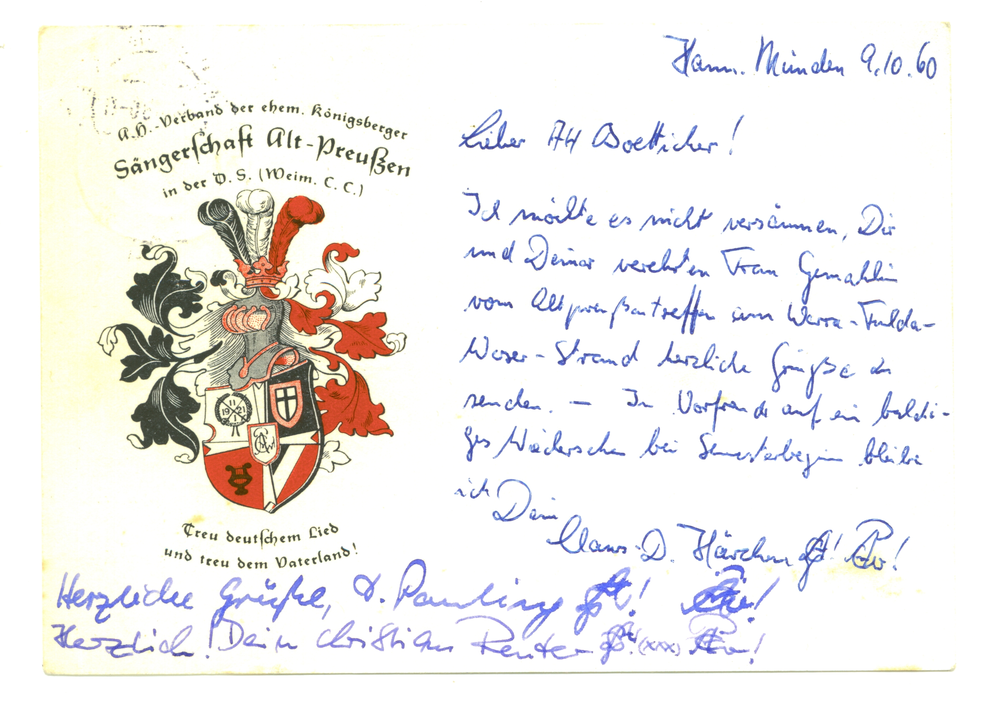 A.H.-Verband der ehem. Königsberger
Sängerschaft Alt-Preußen
in der D. S. (Weim. C. C.)
11
19 21
Treu deutschem Lied
und treu dem Vaterland!
Hann. Münden 9.10.60
Lieber AH Boetticher!
Ich möchte es nicht versäumen, Dir
und Deiner verehrten Frau Gemahlin
vom Altpreußentreffen am Werra-Fulda-
Weser-Strand herzliche Grüße zu
senden. – In Vorfreude auf ein baldi-
ges Wiedersehen bei Semesterbeginn bleibe
ich Dein
Claus-D.
Herzliche Grüße, D. Pauling
Herzlich! Dein Christian Reuter (xxx)